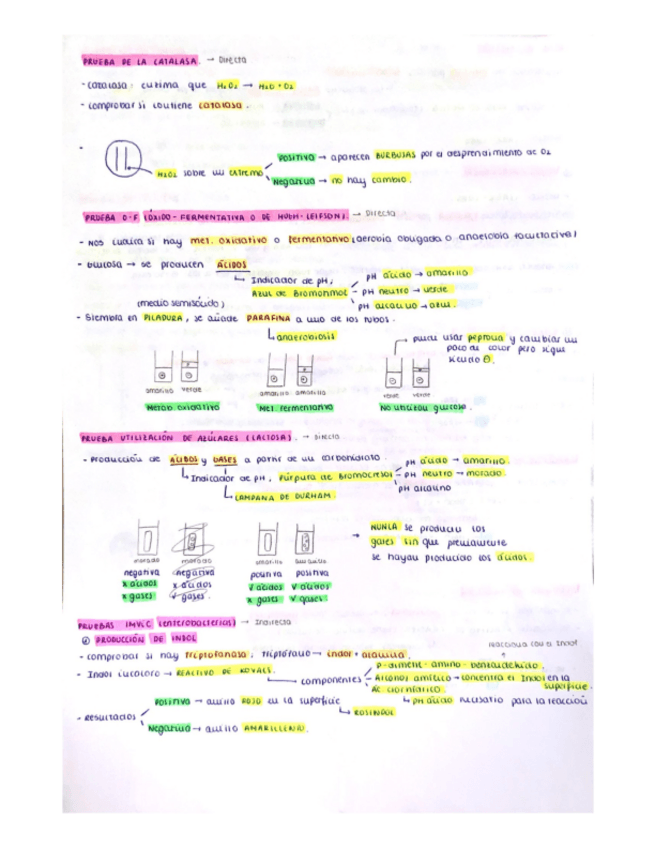 PRUEBA DE LA CATALASA. → Directa
- Catalasa: enzima que H2O2 → H2O + O2
- comprobar si contiene catalasa.
H2O2 sobre un extremo
Positivo → aparecen BURBUJAS por el desprendimiento de O2
Negativo → no hay cambio.
PRUEBA O-F (ÓXIDO-FERMENTATIVA O DE HUGH-LEIFSON). → Directa
- Nos indica si hay met. oxidativo o fermentativo (aerobia obligada o anaerobia facultativa)
- Glucosa → se producen ÁCIDOS
Indicador de pH,
Azul de Bromotimol
pH ácido → amarillo
pH neutro → verde
pH alcalino → azul.
(medio semisólido)
- Siembra en PICADURA, se añade PARAFINA a uno de los tubos.
anaerobiosis
puede usar peptona y cambiar un
poco de color pero sigue
siendo ⊖.
amarillo verde
amarillo amarillo
verde verde
Metab. oxidativo
Met. fermentativo
No utilizan glucosa.
PRUEBA UTILIZACIÓN DE AZÚCARES (LACTOSA). → Directa
- Producción de ÁCIDOS y GASES a partir de un carbohidrato.
Indicador de pH, Púrpura de Bromocresol
pH ácido → amarillo.
pH neutro → morado.
pH alcalino
CAMPANA DE DURHAM.
→ NUNCA se producen los
gases sin que previamente
se hayan producido los ácidos.
morado morado amarillo
negativa negativa positiva positiva
x ácidos x ácidos √ ácidos √ ácidos
x gases √ gases. x gases √ gases.
PRUEBAS IMViC (enterobacterias) → Indirecta
PRODUCCIÓN DE INDOL
reacciona con el Indol
- comprobar si hay triptofanasa: triptófano → indol + alanina.
- Indol incoloro → REACTIVO DE KOVACS.
componentes
p-dimetil-amino-benzaldehído.
Alcohol amílico → concentra el Indol en la superficie.
Ac clorhídrico.
pH ácido necesario para la reacción
- Resultados
Positivo → anillo ROJO en la superficie
ROSINDOL
Negativo → anillo AMARILLENTO.